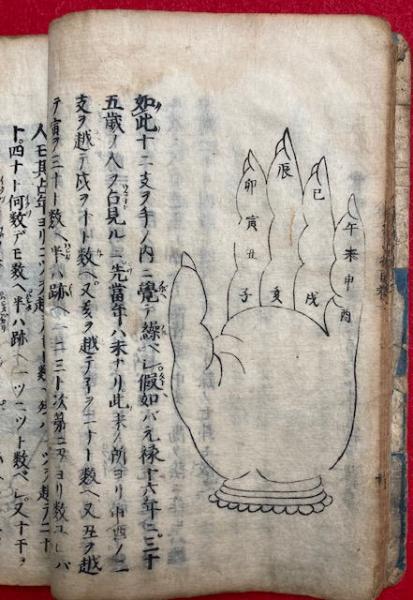 午未申酉
巳戌
辰亥
卯寅丑子
如此十二支ヲ手ノ内ニ覺テ繰ベシ假如バ元禄十六年ニ三十
五歳ノ人ヲ占見ルニ先當年ハ未ナリ此未ノ所ヨリ申酉ノ二
支ヲ越テ戌ヲ十ト数ヘ又亥ヲ越テ子ヲ二十ト数ヘ又丑ヲ越
テ寅ヲ三十ト数ヘ半ハ跡ヘ一二三ト次第ニ ヨリ数ユレバ
人モ其占年ヨリ二ツヲ越テ十ト数ヘ 越テ二十
ト四十ト何数デモ数ヘ半ハ跡ヘ一ツ二ツト数ベシ又十干ヲ